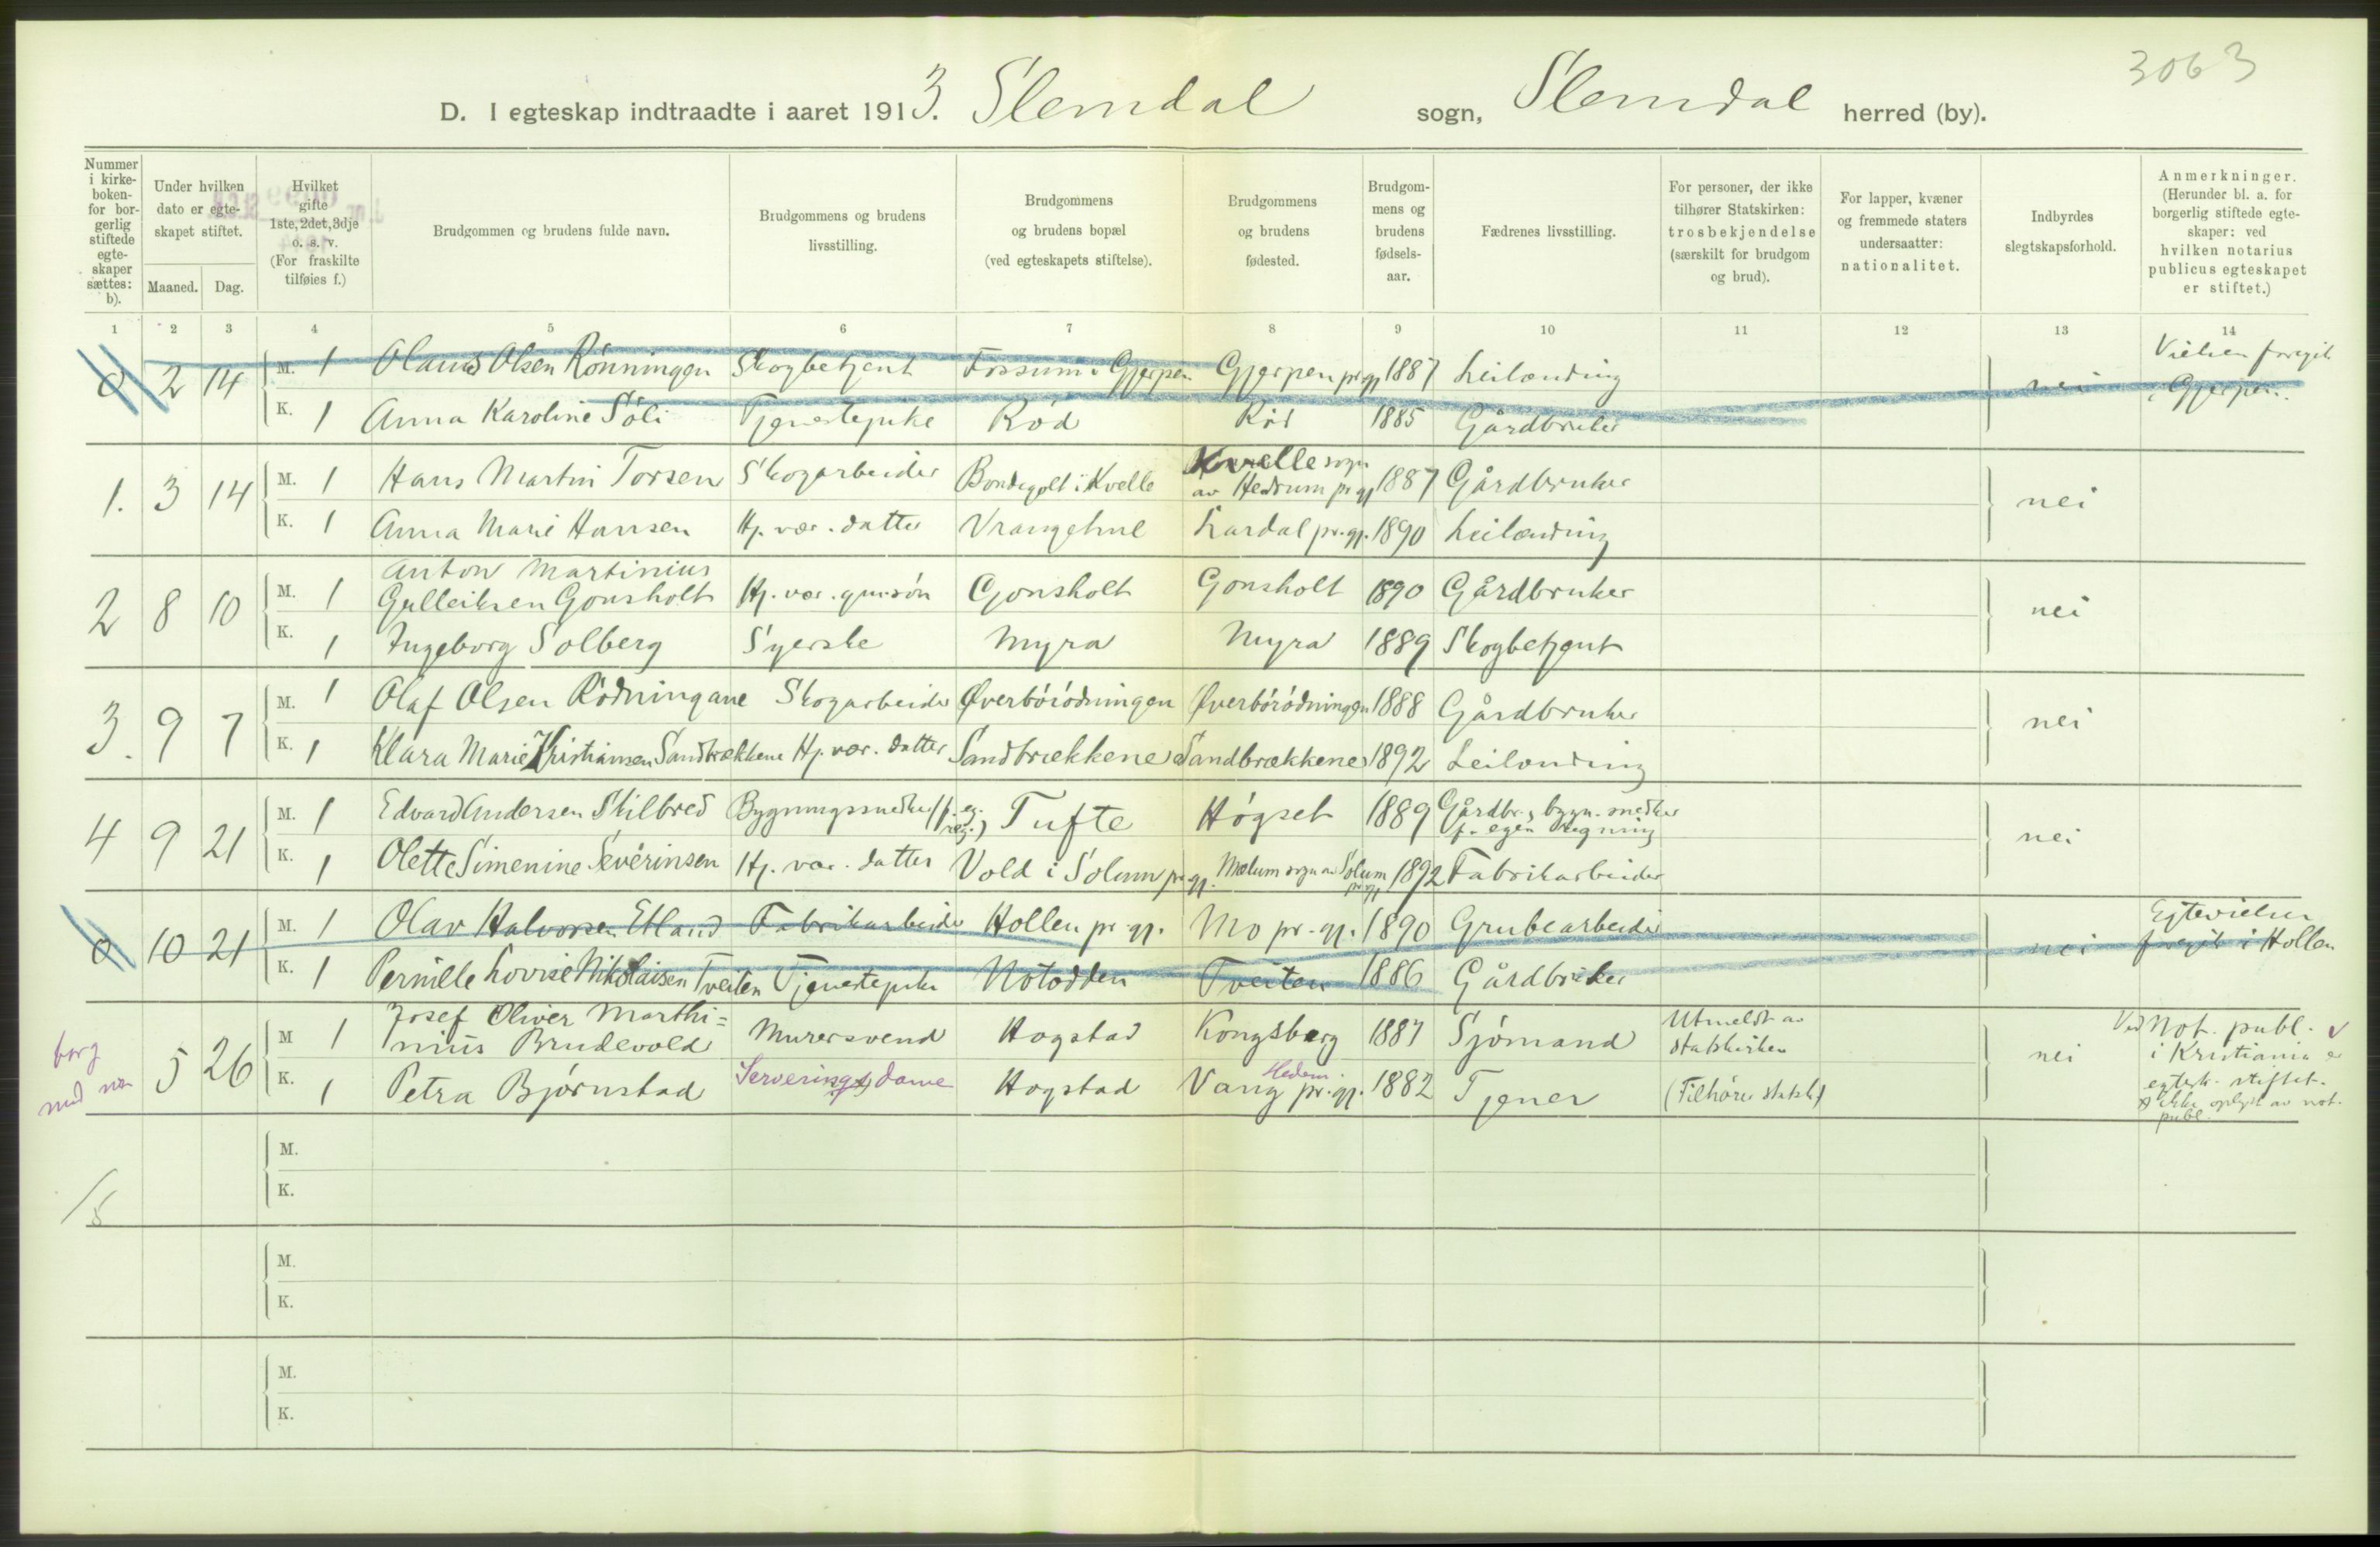 3063
D. I egteskap indtraadte i aaret 1913. Slemdal sogn, Slemdal herred (by).
Nummer i kirke-boken- for bor-gerlig stiftede egte-skaper sættes: b).
Under hvilken dato er egte-skapet stiftet.
Maaned. Dag.
Hvilket gifte 1ste, 2det, 3dje o. s. v. (For fraskilte tilføies f.)
Brudgommen og brudens fulde navn.
Brudgommens og brudens livsstilling.
Brudgommens og brudens bopæl (ved egteskapets stiftelse).
Brudgommens og brudens fødested.
Brudgom-mens og brudens fødsels-aar.
Fædrenes livsstilling.
For personer, der ikke tilhører Statskirken: trosbekjendelse (særskilt for brudgom og brud).
For lapper, kvæner og fremmede staters undersaatter: nationalitet.
Indbyrdes slegtskapsforhold.
Anmerkninger. (Herunder bl. a. for borgerlig stiftede egte-skaper: ved hvilken notarius publicus egteskapet er stiftet.)
1 2 3 4 5 6 7 8 9 10 11 12 13 14
0 2 14 M. 1 Olaus Olsen Rønningen Skogbetjent Fossum i Gjerpen Gjerpen pr.gj. 1887 Leilænding nei Vielsen foregik i Gjerpen.
K. 1 Anna Karoline Søli Tjenestepike Rød Rød 1885 Gårdbruker
1. 3 14 M. 1 Hans Martin Torsen Skogarbeider Bondegolt i Kvelle Kvelle sogn av Hedrum pr.gj. 1887 Gårdbruker nei
K. 1 Anna Marie Hansen Hj. vær. datter Lardal pr.gj. 1890 Leilænding
2 8 10 M. 1 Anton Martinius
Gulleiksen Gonsholt Hj. vær. gm.søn Gonsholt Gonsholt 1890 Gårdbruker nei
K. 1 Ingeborg Solberg Syerske Myra Myra 1889 Skogbetjent
3. 9 7 M. 1 Olaf Olsen Rødningane Skogarbeider Øverbörödningen Øverbörödningen 1888 Gårdbruker nei
K. 1 Klara Marie Kristiansen Sandbrækkene Hj. vær. datter Sandbrækkene Sandbrækkene 1892 Leilænding
4 9 21 M. 1 Edvard Andersen Stilbred Bygningssnedker (f. eg. regn.) Tufte Høgset 1889 Gårdbr., bygn. snedker f. egen regning nei
K. 1 Olette Simenine Severinsen Hj. vær. datter Vold i Solum pr.gj. Mælum sogn av Solum pr.gj. 1892 Fabrikarbeider
0 10 21 M. 1 Olav Halvorsen Etland Fabrikarbeider Hollen pr.gj. Mo pr.gj. 1890 Grubearbeider nei Egtevielsen foregik i Hollen
K. 1 Pernille Lovise Nikolaisen Tveiten Tjenestepike Notodden Tveiten 1886 Gårdbruker
borg
5 26 M 1 Josef Oliver Marthi=
nius Brudevold Murersvend Hogstad Kongsberg 1887 Sjømand Utmeldt av statskirken nei Ved Not. publ. i Kristiania er egtesk. stiftet.
K. 1 Petra Bjørnstad Serveringsdame Hogstad Vang pr.gj. Hedem. 1882 Tjener (Tilhører statsk.) ikke oplyst av not. publ.
M.
K.
M.
K.
M.
K.